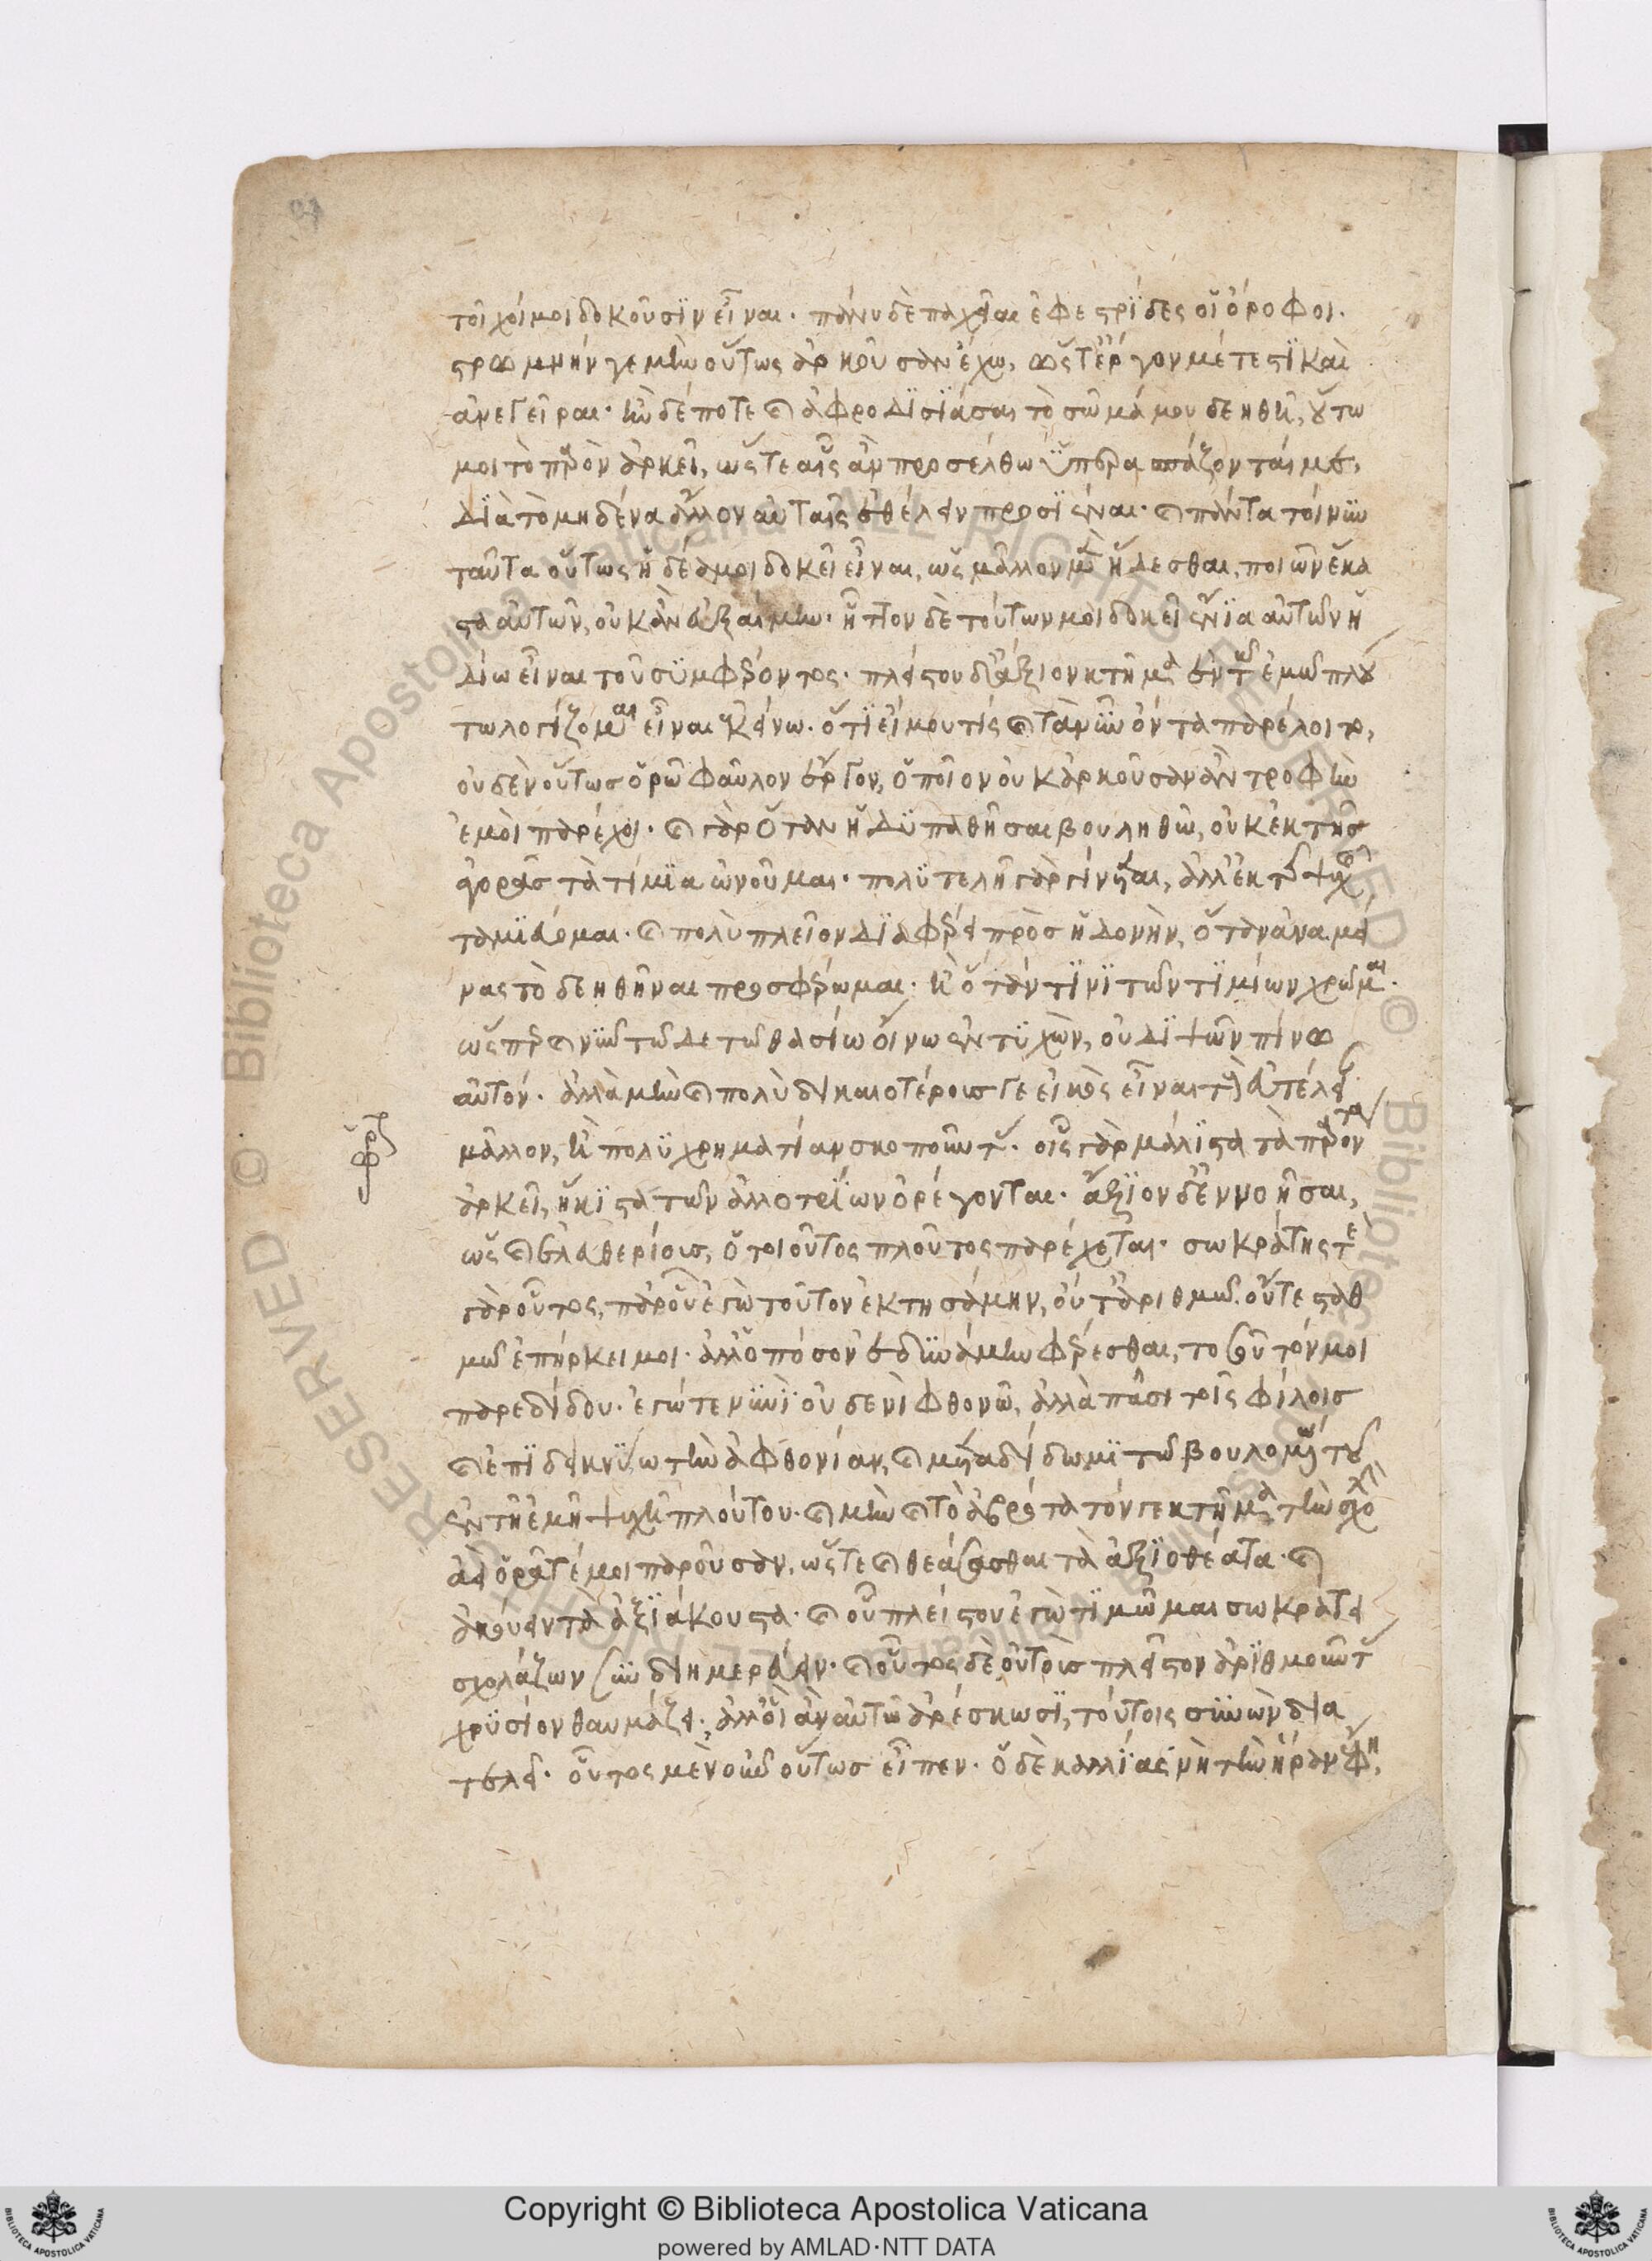 τοῖχοί μοι δοκοῦσϊν εἶναι· πάνυ δὲ παχεῖαι ἐφεστρίδες οἱ ὄροφοι.
στρωμνήν γε μὴν οὕτως ἀρκοῦσαν ἔχω, ὥστ' ἔργον μέγ' ἐστὶ καὶ
ἀνεγεῖραι· ἢν δέ ποτε καὶ ἀφροδισιάσαι τὸ σῶμά μου δεηθῇ, οὕτω
μοι τὸ παρὸν ἀρκεῖ, ὥστε αἷς ἂν προσέλθω ὑπερασπάζονταί με,
διὰ τὸ μηδένα ἄλλον αὐταῖς ἐθέλειν προσιέναι· καὶ πάντα τοίνυν
ταῦτα οὕτως ἡδέα μοι δοκεῖ εἶναι, ὡς μᾶλλον μὲν ἥδεσθαι, ποιῶν ἕκα
στα αὐτῶν, οὐκ ἂν εὐξαίμην· ἧττον δὲ τούτων μοι δοκεῖ ἔνια αὐτῶν ἡ
δίω εἶναι τοῦ συμφέροντος· πλείστου δ' ἄξιον κτῆμα ἐν τῷ ἐμῷ πλού
τω λογίζομαι εἶναι ἐκείνω· ὅτι εἴ μου τίς καὶ τὰ νῦν ὄντα παρέλοιτο,
οὐδὲν οὕτως ὁρῶ φαῦλον ἔργον, ὁποῖον οὐκ ἀρκοῦσαν ἂν τροφὴν
ἐμοὶ παρέχοι· καὶ γὰρ ὅταν ἡδυπαθῆσαι βουληθῶ, οὐκ ἐκ τῆς
ἀγορᾶς τὰ τίμια ὠνοῦμαι· πολυτελῆ γὰρ γίνεται, ἀλλ' ἐκ τῆς ψυχῆς
ταμιεύομαι· καὶ πολὺ πλεῖον διαφέρει πρὸς ἡδονὴν, ὅταν ἀναμεί
νας τὸ δεηθῆναι προσφέρωμαι· ἢ ὅταν τινὶ τῶν τιμίων χρῶμαι·
ὥσπερ καὶ νῦν τῶδε τῶ θασίω οἴνω ἐντυχὼν, οὐ διψῶν πίνω
αὐτόν· ἀλλὰ μὴν καὶ πολὺ δικαιοτέρους γε εἰκὸς εἶναι τοὺς εὐτέλειαν
μᾶλλον, ἢ πολυχρηματίαν σκοποῦντας· οἷς γὰρ μάλιστα τὰ παρόντα
ἀρκεῖ, ἥκιστα τῶν ἀλλοτρίων ὀρέγονται· ἄξιον δ' ἐννοῆσαι,
ὡς καὶ ἐλευθερίους, ὁ τοιοῦτος πλοῦτος παρέχεται· σωκράτης τε
γὰρ οὗτος, παρ' οὗ ἐγὼ τοῦτον ἐκτησάμην, οὔτ' ἀριθμῶ οὔτε σταθ
μῶ ἐπήρκει μοι· ἀλλ' ὁπόσον ἐδυνάμην φέρεσθαι, τοσοῦτόν μοι
παρεδίδου· ἐγώ τε νυνὶ οὐδενὶ φθονῶ, ἀλλὰ πᾶσι τοῖς φίλοις
καὶ ἐπιδεικνύω τὴν ἀφθονίαν, καὶ μεταδίδωμι τῶ βουλομένω τοῦ
ἐν τῇ ἐμῇ ψυχῇ πλούτου· καὶ μὴν καὶ τὸ ἁβρότατόν γε κτῆμα τὴν σχολ
ὴν ἀεὶ ὁρᾶτέ μοι παροῦσαν, ὥστε καὶ θεάσασθαι τὰ ἀξιοθέατα· καὶ
ἀκούειν τὰ ἀξιάκουστα· καὶ ὃ πλείστου ἐγὼ τιμῶμαι σωκράτει
σχολάζων συνδιημερεύειν· καὶ οὗτος δὲ οὐ τοὺς πλεῖστον ἀριθμοῦντας
χρυσίον θαυμάζει, ἀλλ' οἳ ἂν αὐτῶ ἀρέσκωσι, τούτοις συνὼν δια
τελεῖ· οὗτος μὲν οὖν οὕτως εἶπεν· ὁ δὲ καλλίας νὴ τὴν ἥραν ἔφη,